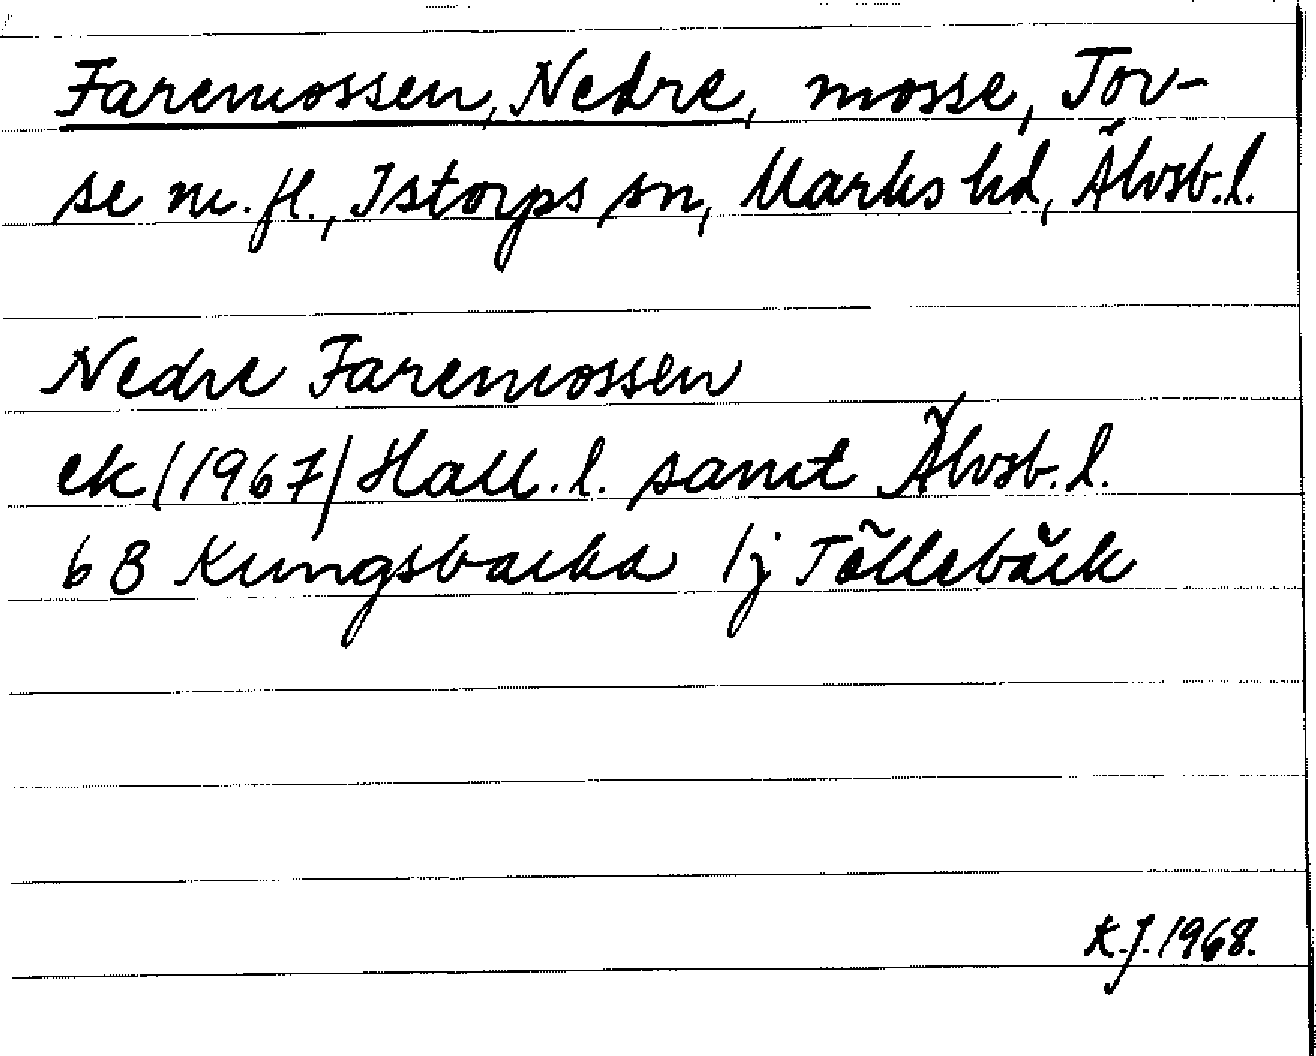 Faremossen, Nedre, mosse, Tov-
se m.fl., Istorps sn, Marks hd, Älvsb.l.
Nedre Faremossen
ek (1967) Hall.l. samt Älvsb.l.
6B Kungsbacka 1j Töllebäck
K.J. 1968.